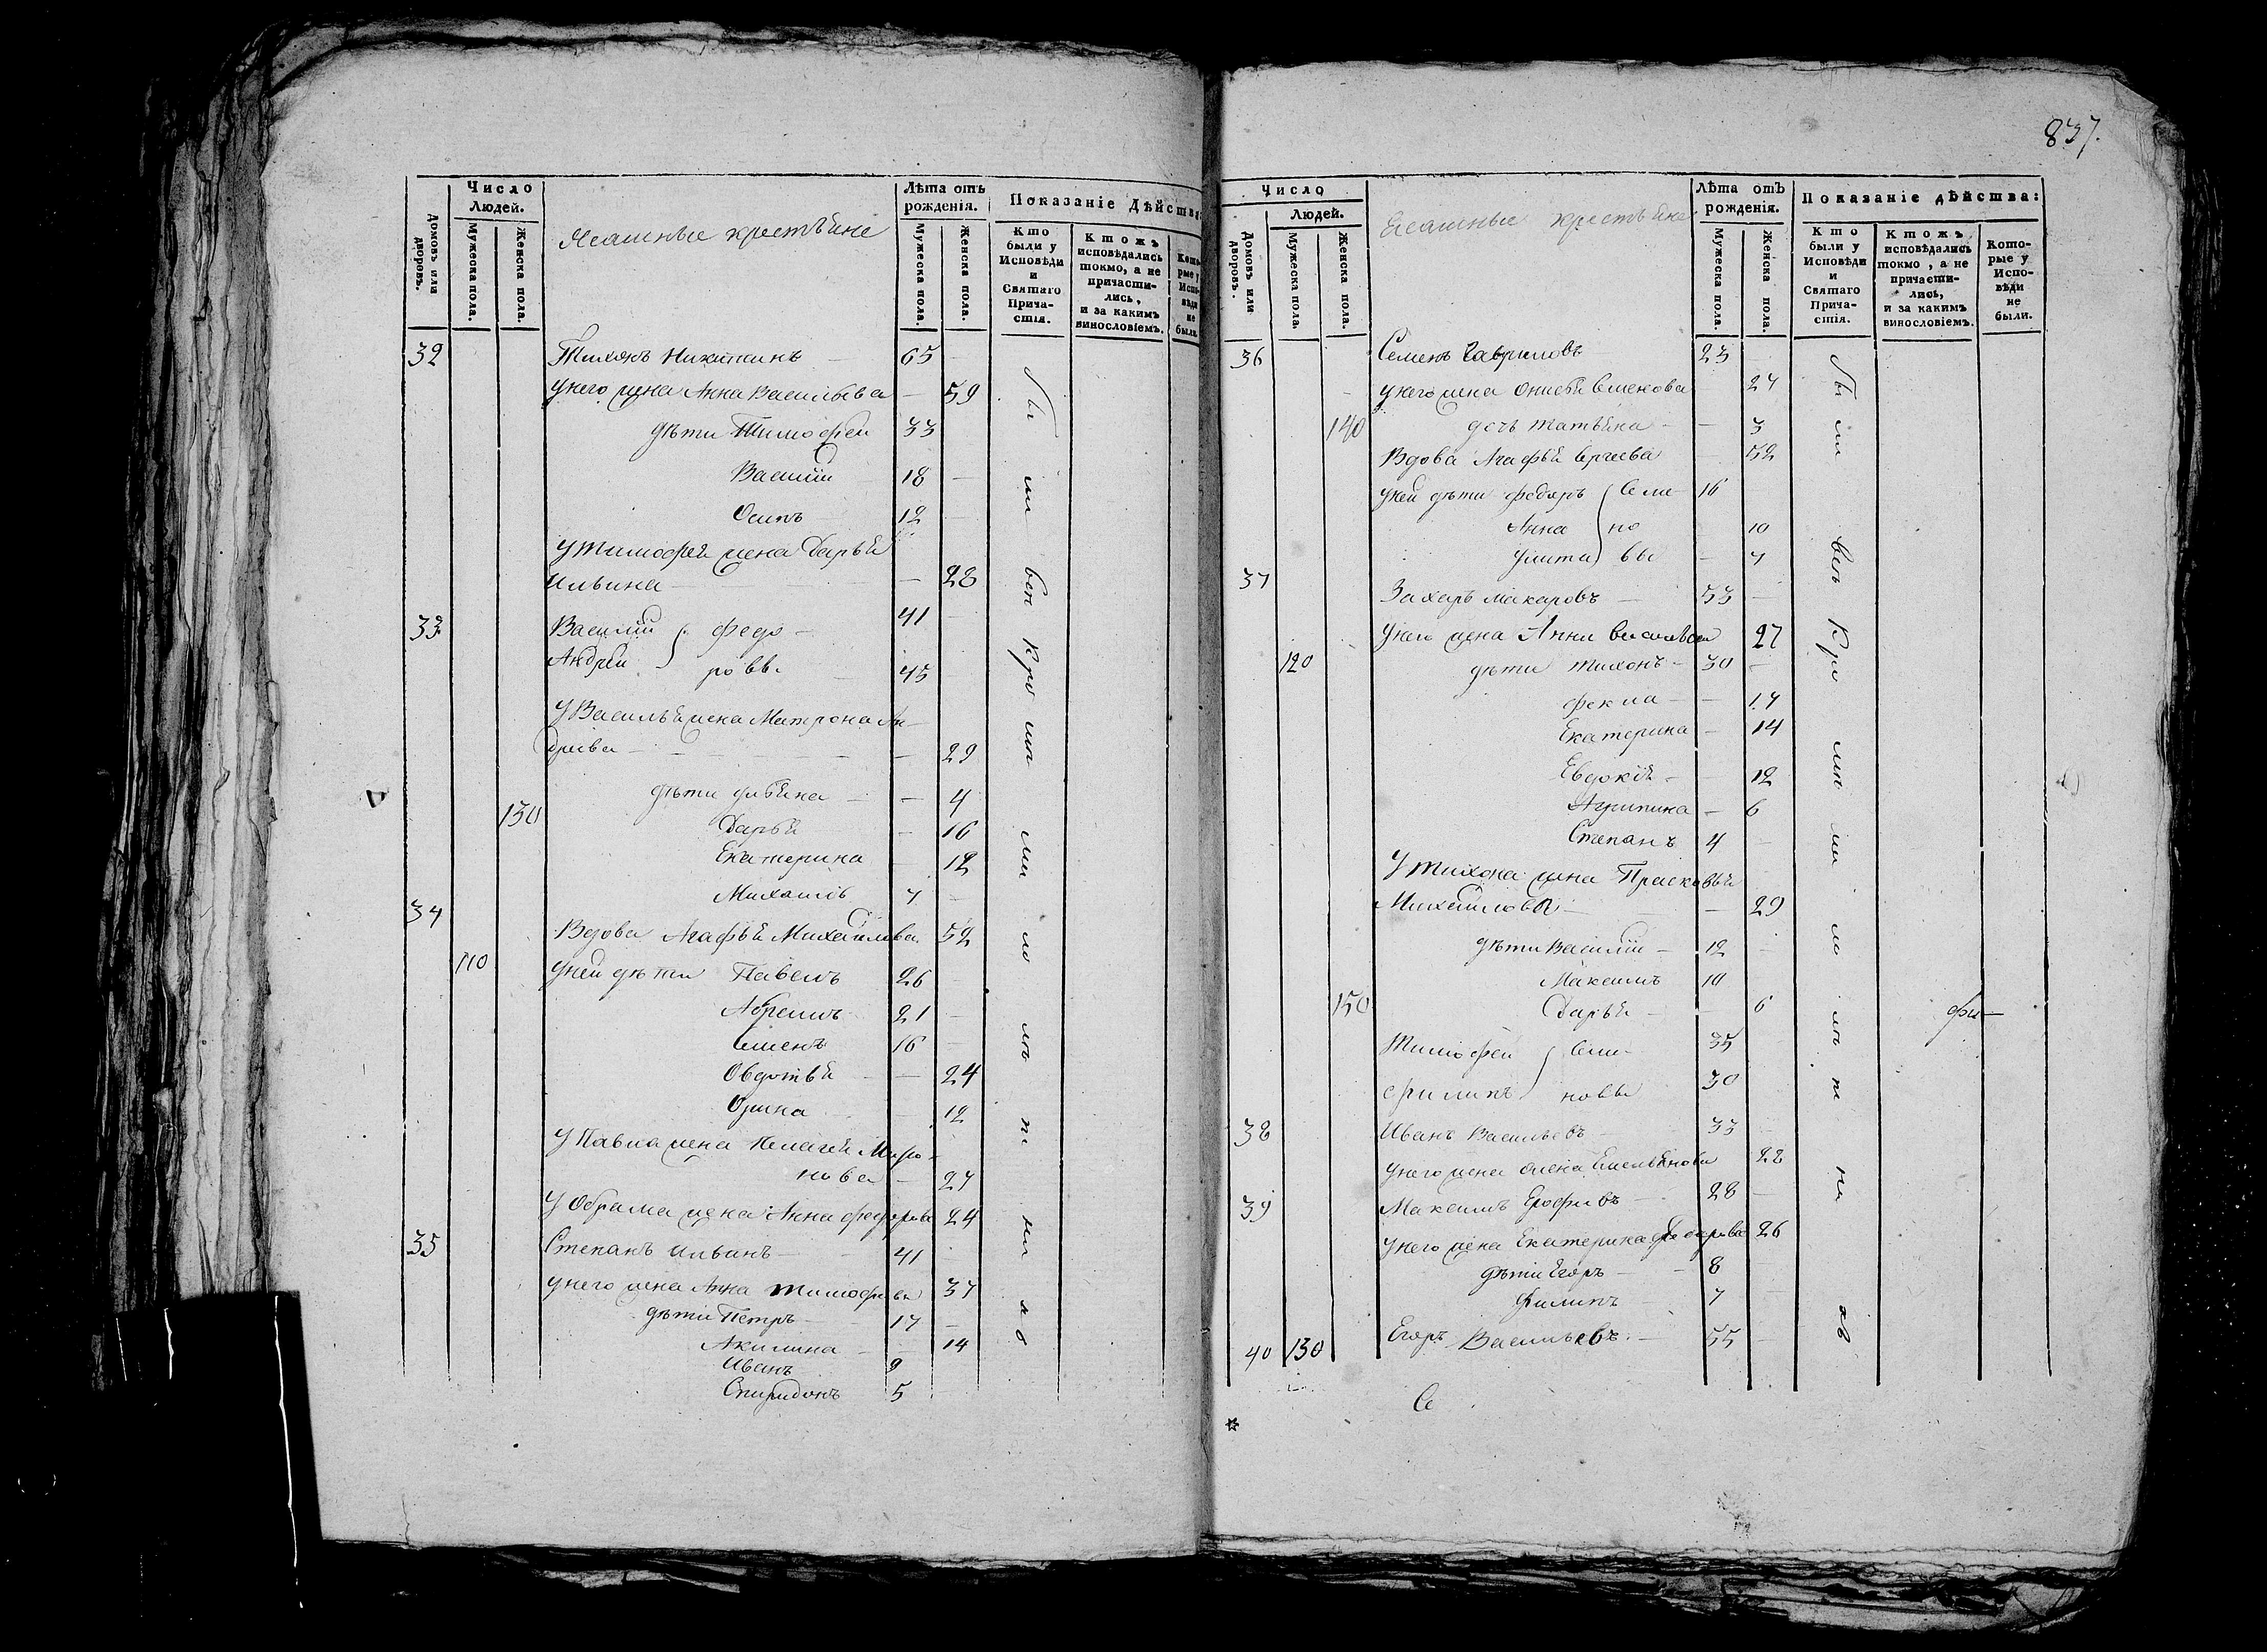 Число
Людей.
Домовъ или дворовъ.
Мужеска пола.
Женска пола.
Ясашные крестьяне
Лѣта отъ рожденія.
Мужеска пола.
Женска пола.
Показаніе Дѣйства:
Кто были у Исповѣди и Святаго Причастія.
Ктожъ исповѣдались токмо, а не причастились, и за какимъ винословіемъ.
Которые у Исповѣди не были.
32 Тихонъ Никитинъ 65
У него жена Анна Васильева 59
дѣти Тимофей 33
Василій 18
Осипъ 12
У Тимофея жена Дарья
Ильина 28
33 Василій Федо 41
Андрей ровы 45
У Василья жена Матрона Ан
дреева 29
дѣти Ульяна 4
130 Дарья 16
Екатерина 12
Михаилъ 7
34
Вдова Агафья Михайлова 52
110 У ней дѣти Павелъ 26
Абрамъ 21
Семенъ 16
Овдотья 24
Орина 12
У Павла жена Пелагея Миро
нова 27
У Обрама жена Анна Федорова 24
35 Степанъ Ильинъ 41
У него жена Анна Тимофеева 37
дѣти Петръ 17
Акилина 14
Иванъ 9
Спиридонъ 5
837.
Число
Людей.
Домовъ или дворовъ.
Мужеска пола.
Женска пола.
Ясашные крестьяне
Лѣта отъ рожденія.
Мужеска пола.
Женска пола.
Показаніе дѣйства:
Кто были у Исповѣди и Святаго Причастія.
Ктожъ исповѣдались токмо, а не причастились, и за какимъ винословіемъ.
Которые у Исповѣди не были.
36 Семенъ Гавриловъ 23
У него жена Онисья Семенова 27
140 дочь Татьяна 3
Вдова Агафья Сергеева 52
У ней дѣти Федоръ Семе 16
Анна но 10
Улита вы 7
37
Захаръ Макаровъ 53
У него жена Анна Васильева 27
120 дѣти Тихонъ 30
Фекла 17
Екатерина 14
Евдокія 12
Агрипина 6
Степанъ 4
У Тихона жена Прасковья
Михайлова 29
дѣти Василій 12
Максимъ 10
150 Дарья 6
Тимофей Семе 35
Филипъ новы 30
38 Иванъ Васильевъ 33
У него жена Олена Емельянова 28
39 Максимъ Ерофеевъ 28
У него жена Екатерина Федорова 26
дѣти Егоръ 8
Филипъ 7
40 130 Егоръ Васильевъ 55
Се